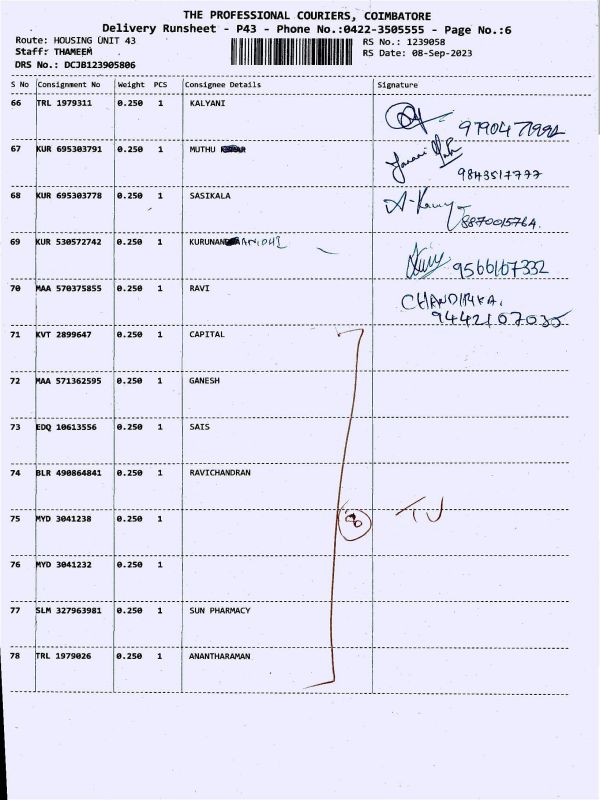 THE PROFESSIONAL COURIERS, COIMBATORE
Delivery Runsheet - P43 - Phone No.:0422-3505555 - Page No.:6
Route: HOUSING UNIT 43 RS No.: 1239058
Staff: THAMEEM RS Date: 08-Sep-2023
DRS No.: DCJB123905806
S No Consignment No Weight PCS Consignee Details Signature
66 TRL 1979311 0.250 1 KALYANI
9790471994
67 KUR 695303791 0.250 1 MUTHU
9843517777
68 KUR 695303778 0.250 1 SASIKALA
8870015764.
69 KUR 530572742 0.250 1 KURUNAN
9566167332
70 MAA 570375855 0.250 1 RAVI CHANDRIKA.
9442107035
71 KVT 2899647 0.250 1 CAPITAL
72 MAA 571362595 0.250 1 GANESH
73 EDQ 10613556 0.250 1 SAIS
74 BLR 490864841 0.250 1 RAVICHANDRAN
75 MYD 3041238 0.250 1 8 TU
76 MYD 3041232 0.250 1
77 SLM 327963981 0.250 1 SUN PHARMACY
78 TRL 1979026 0.250 1 ANANTHARAMAN